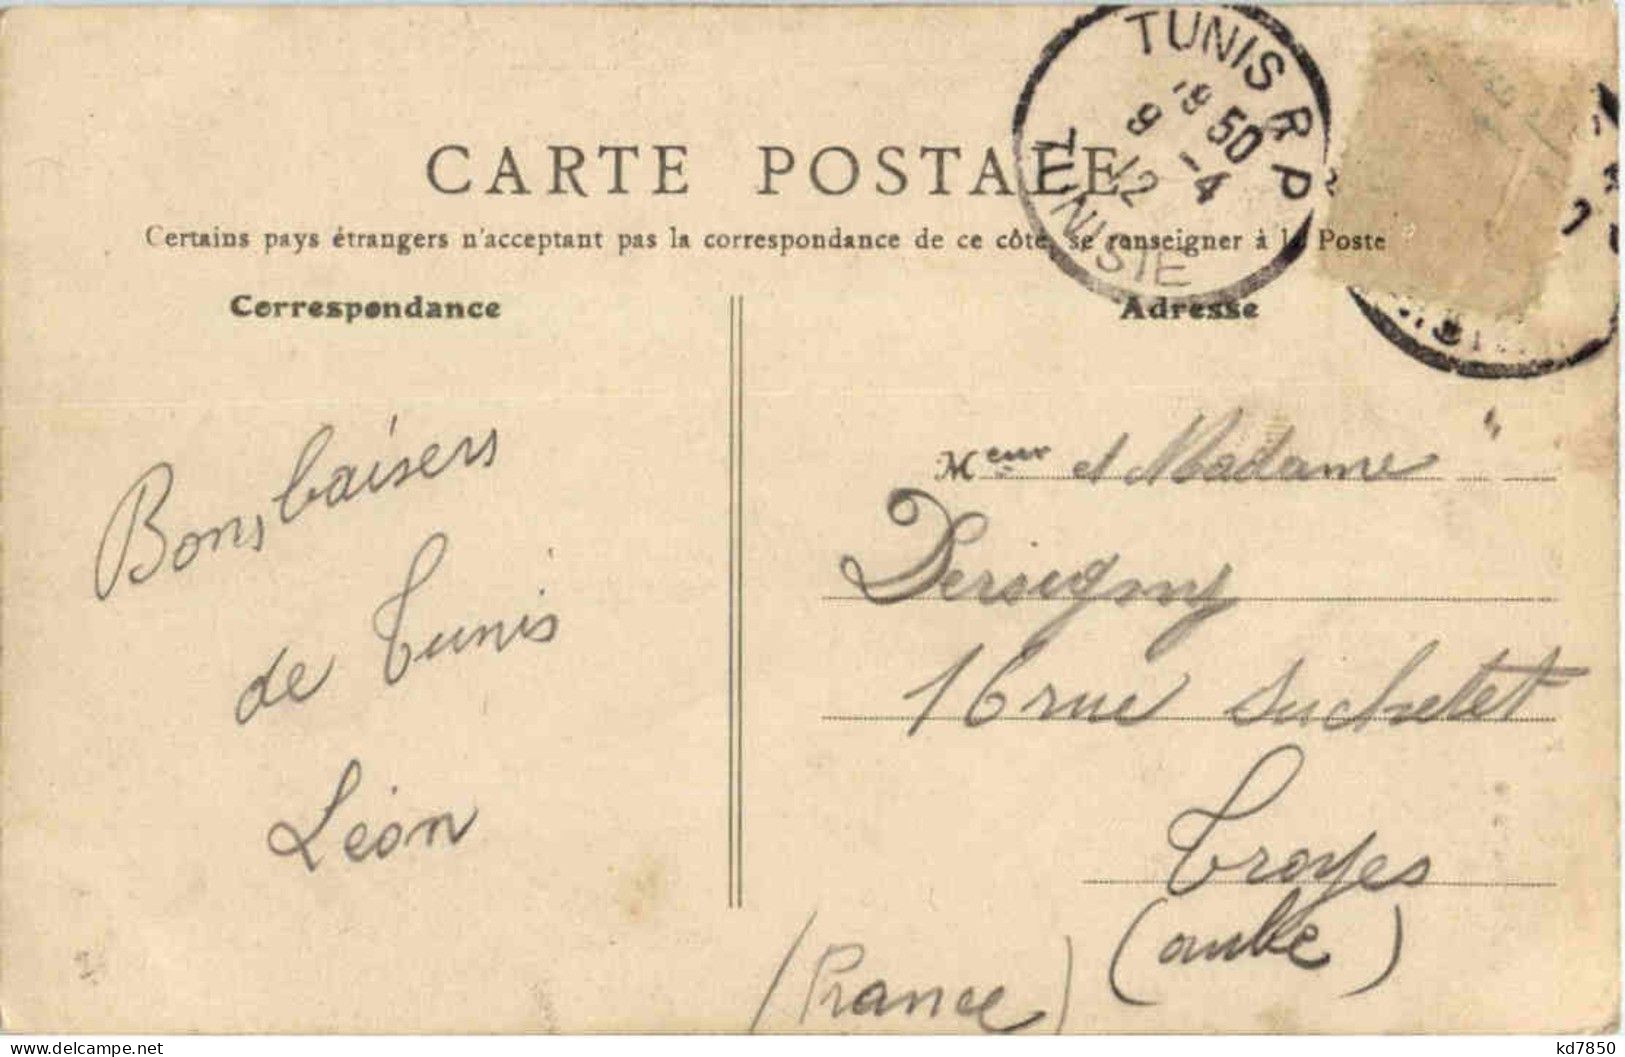 CARTE POSTALE
Certains pays étrangers n'acceptant pas la correspondance de ce côté, se renseigner à la Poste
TUNIS R P
19 50
9 -4
12
TUNISIE
Correspondance
Bons baisers
de Tunis
Léon
Adresse
Meur et Madame
Persigny
16 rue Suchetet
Troyes
(aube)
(France)
kd7850